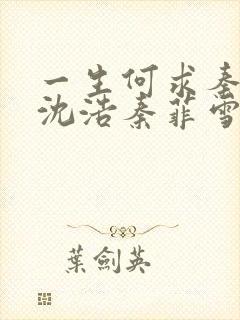 一生何求秦
沈浩秦菲雪
葉劍英